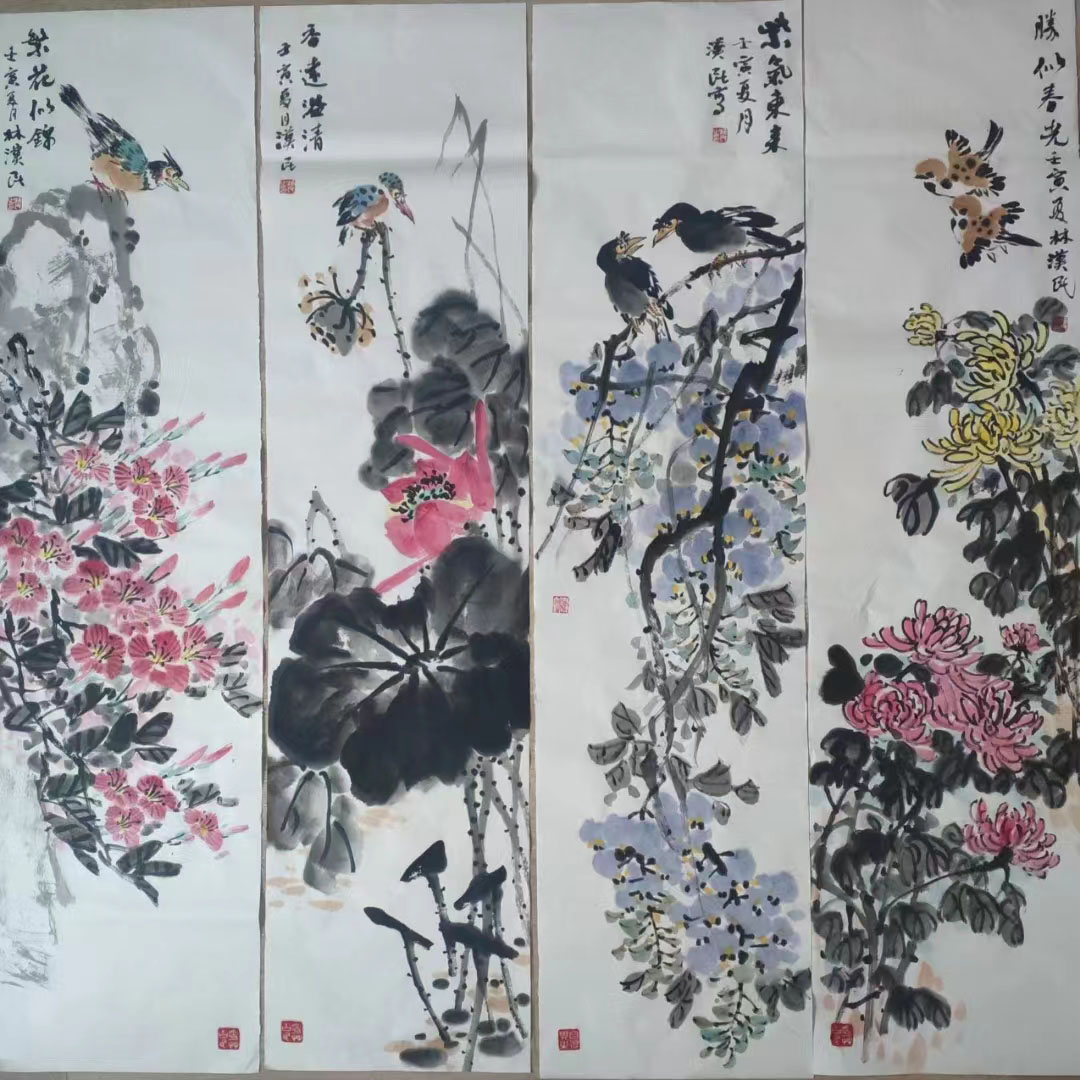 繁花似錦
壬寅夏月林漢民
香遠溢清
壬寅夏月漢民
紫氣東来
壬寅夏月
漢民寫
勝似春光壬寅夏林漢民